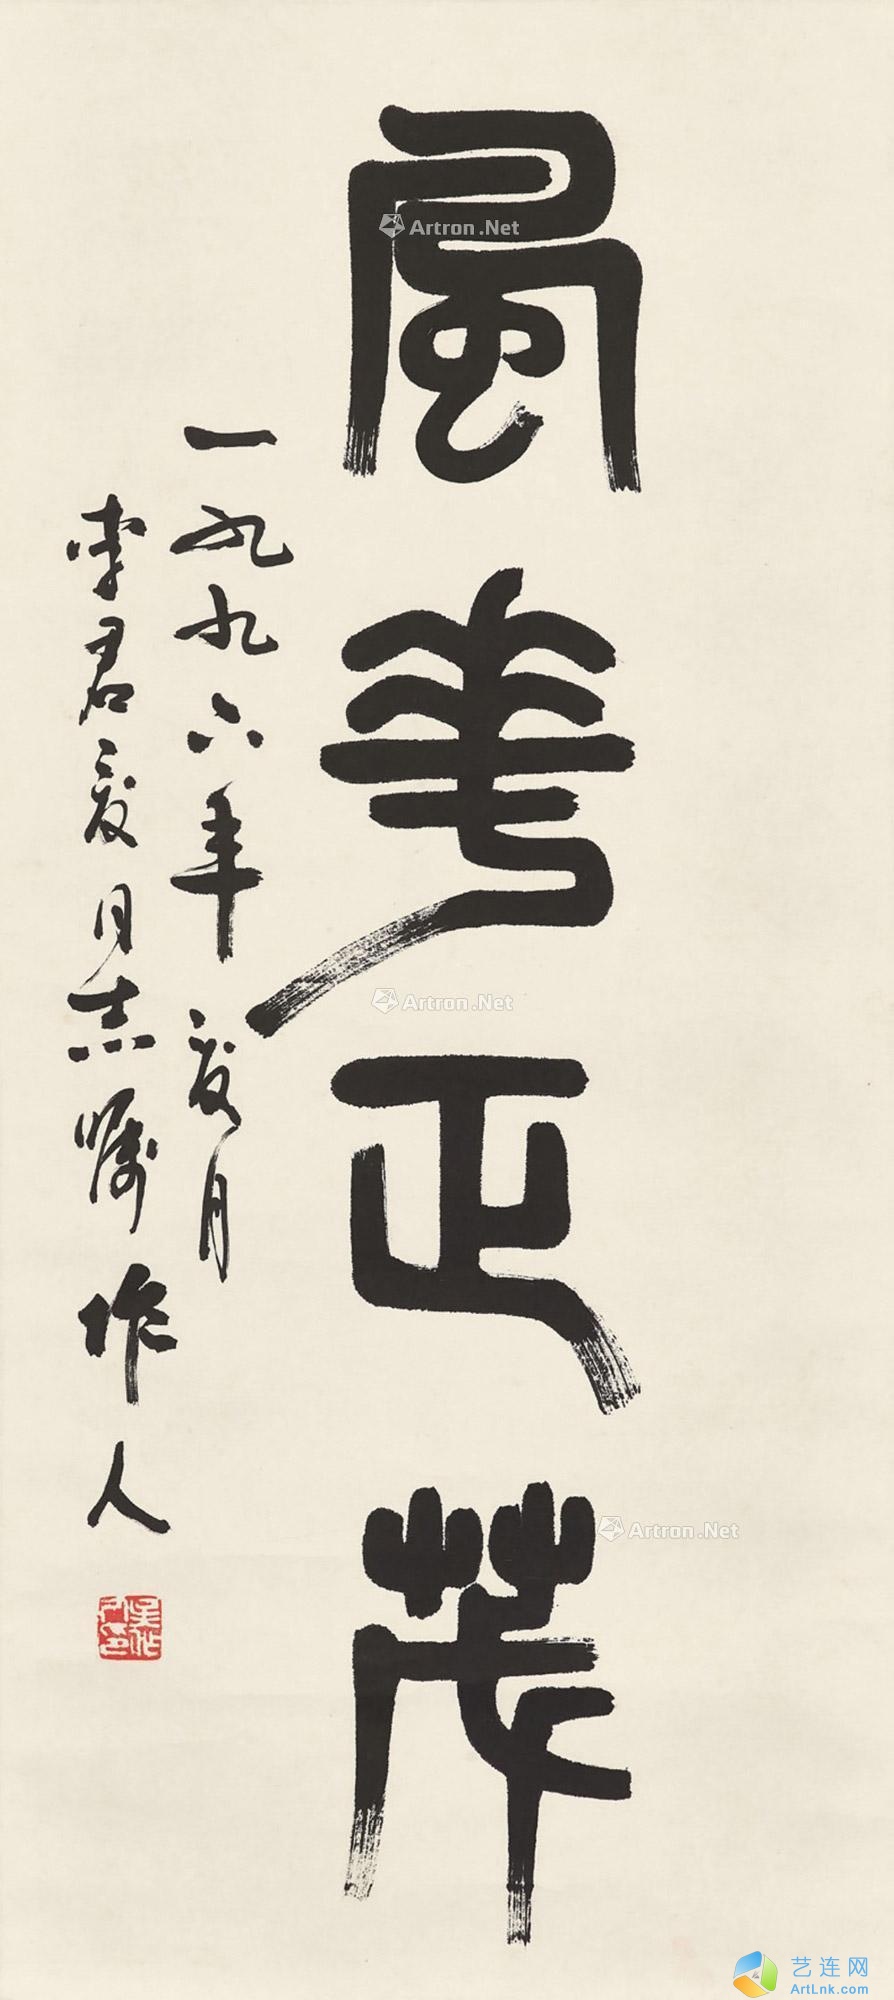 風華正茂
一九九六年夏月
李君夏同志嘱 作人
吴作人印
Artron.Net
Artron.Net
Artron.Net
艺连网
ArtLnk.com